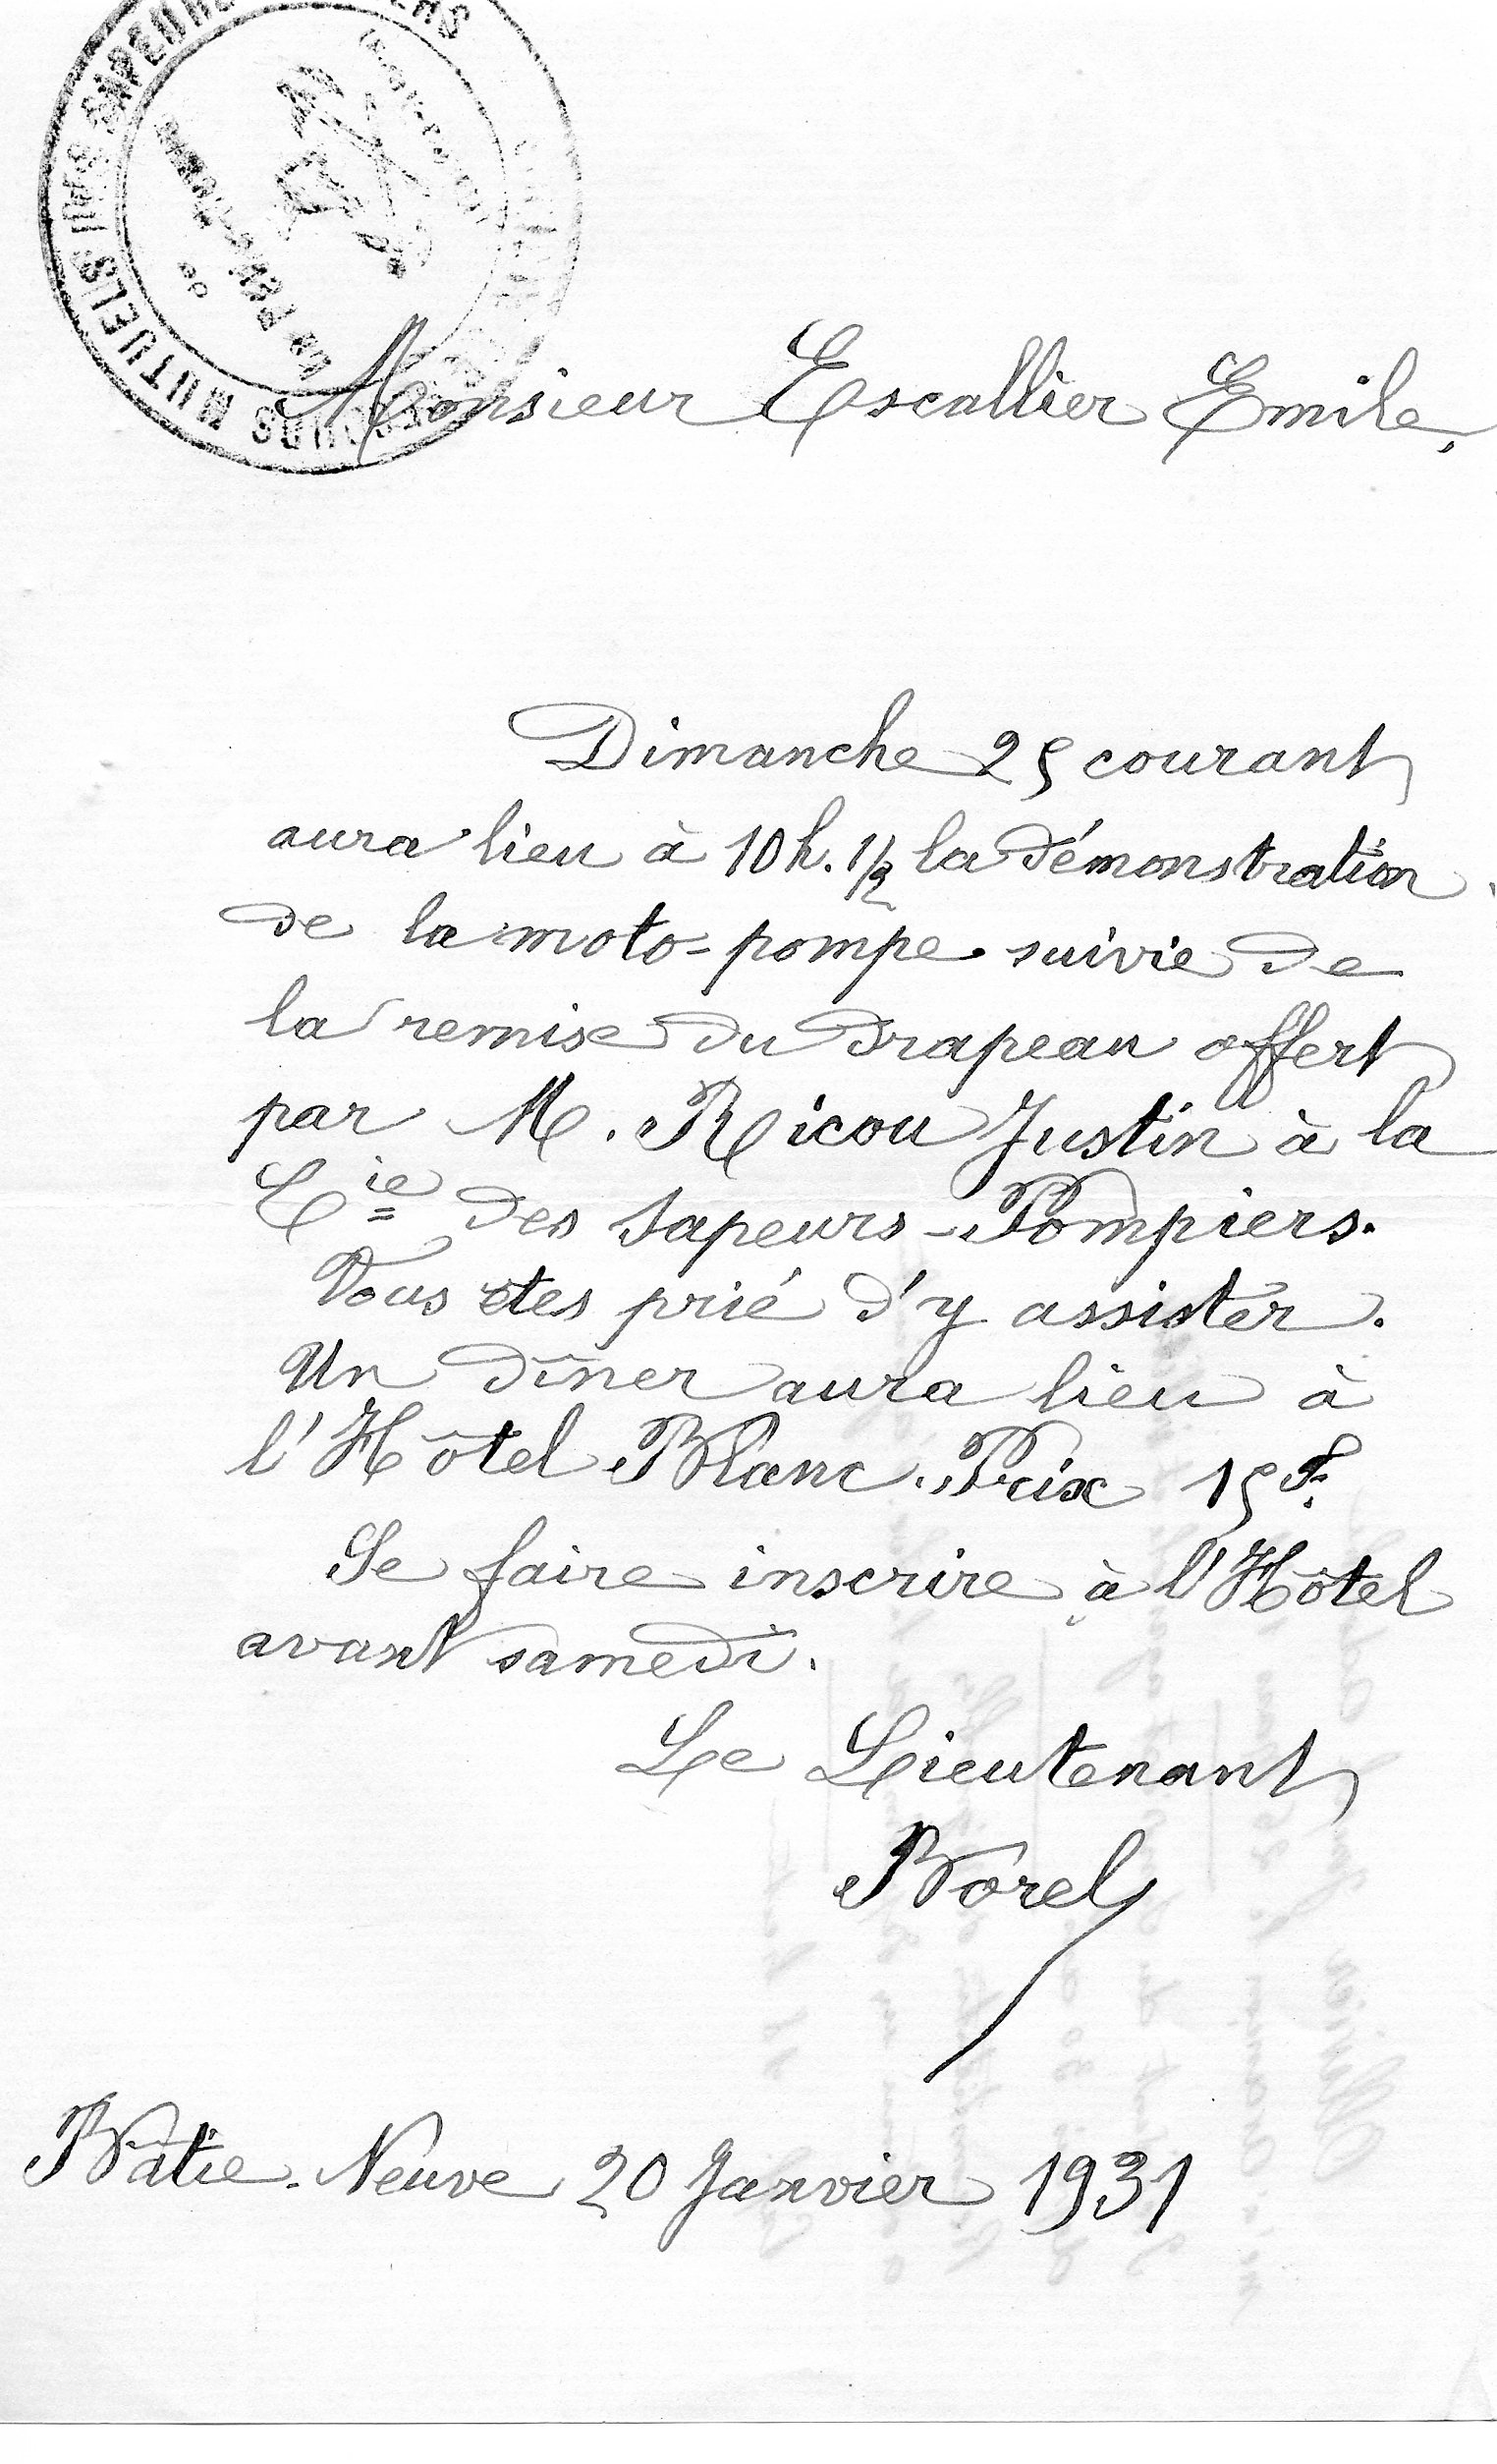 SECOURS MUTUELS
SAPEURS
Monsieur Escallier Emile,
Dimanche 25 courant
aura lieu à 10h. 1/2 la démonstration
de la moto-pompe suivie de
la remise du drapeau offert
par M. Ricou Justin à la
Cie des Sapeurs-Pompiers.
Vous etes prié d'y assister.
Un dîner aura lieu à
l'Hôtel Blanc. Prix 15 f.
Se faire inscrire à l'Hôtel
avant samedi.
Le Lieutenant
Borel
Bâtie-Neuve 20 Janvier 1931